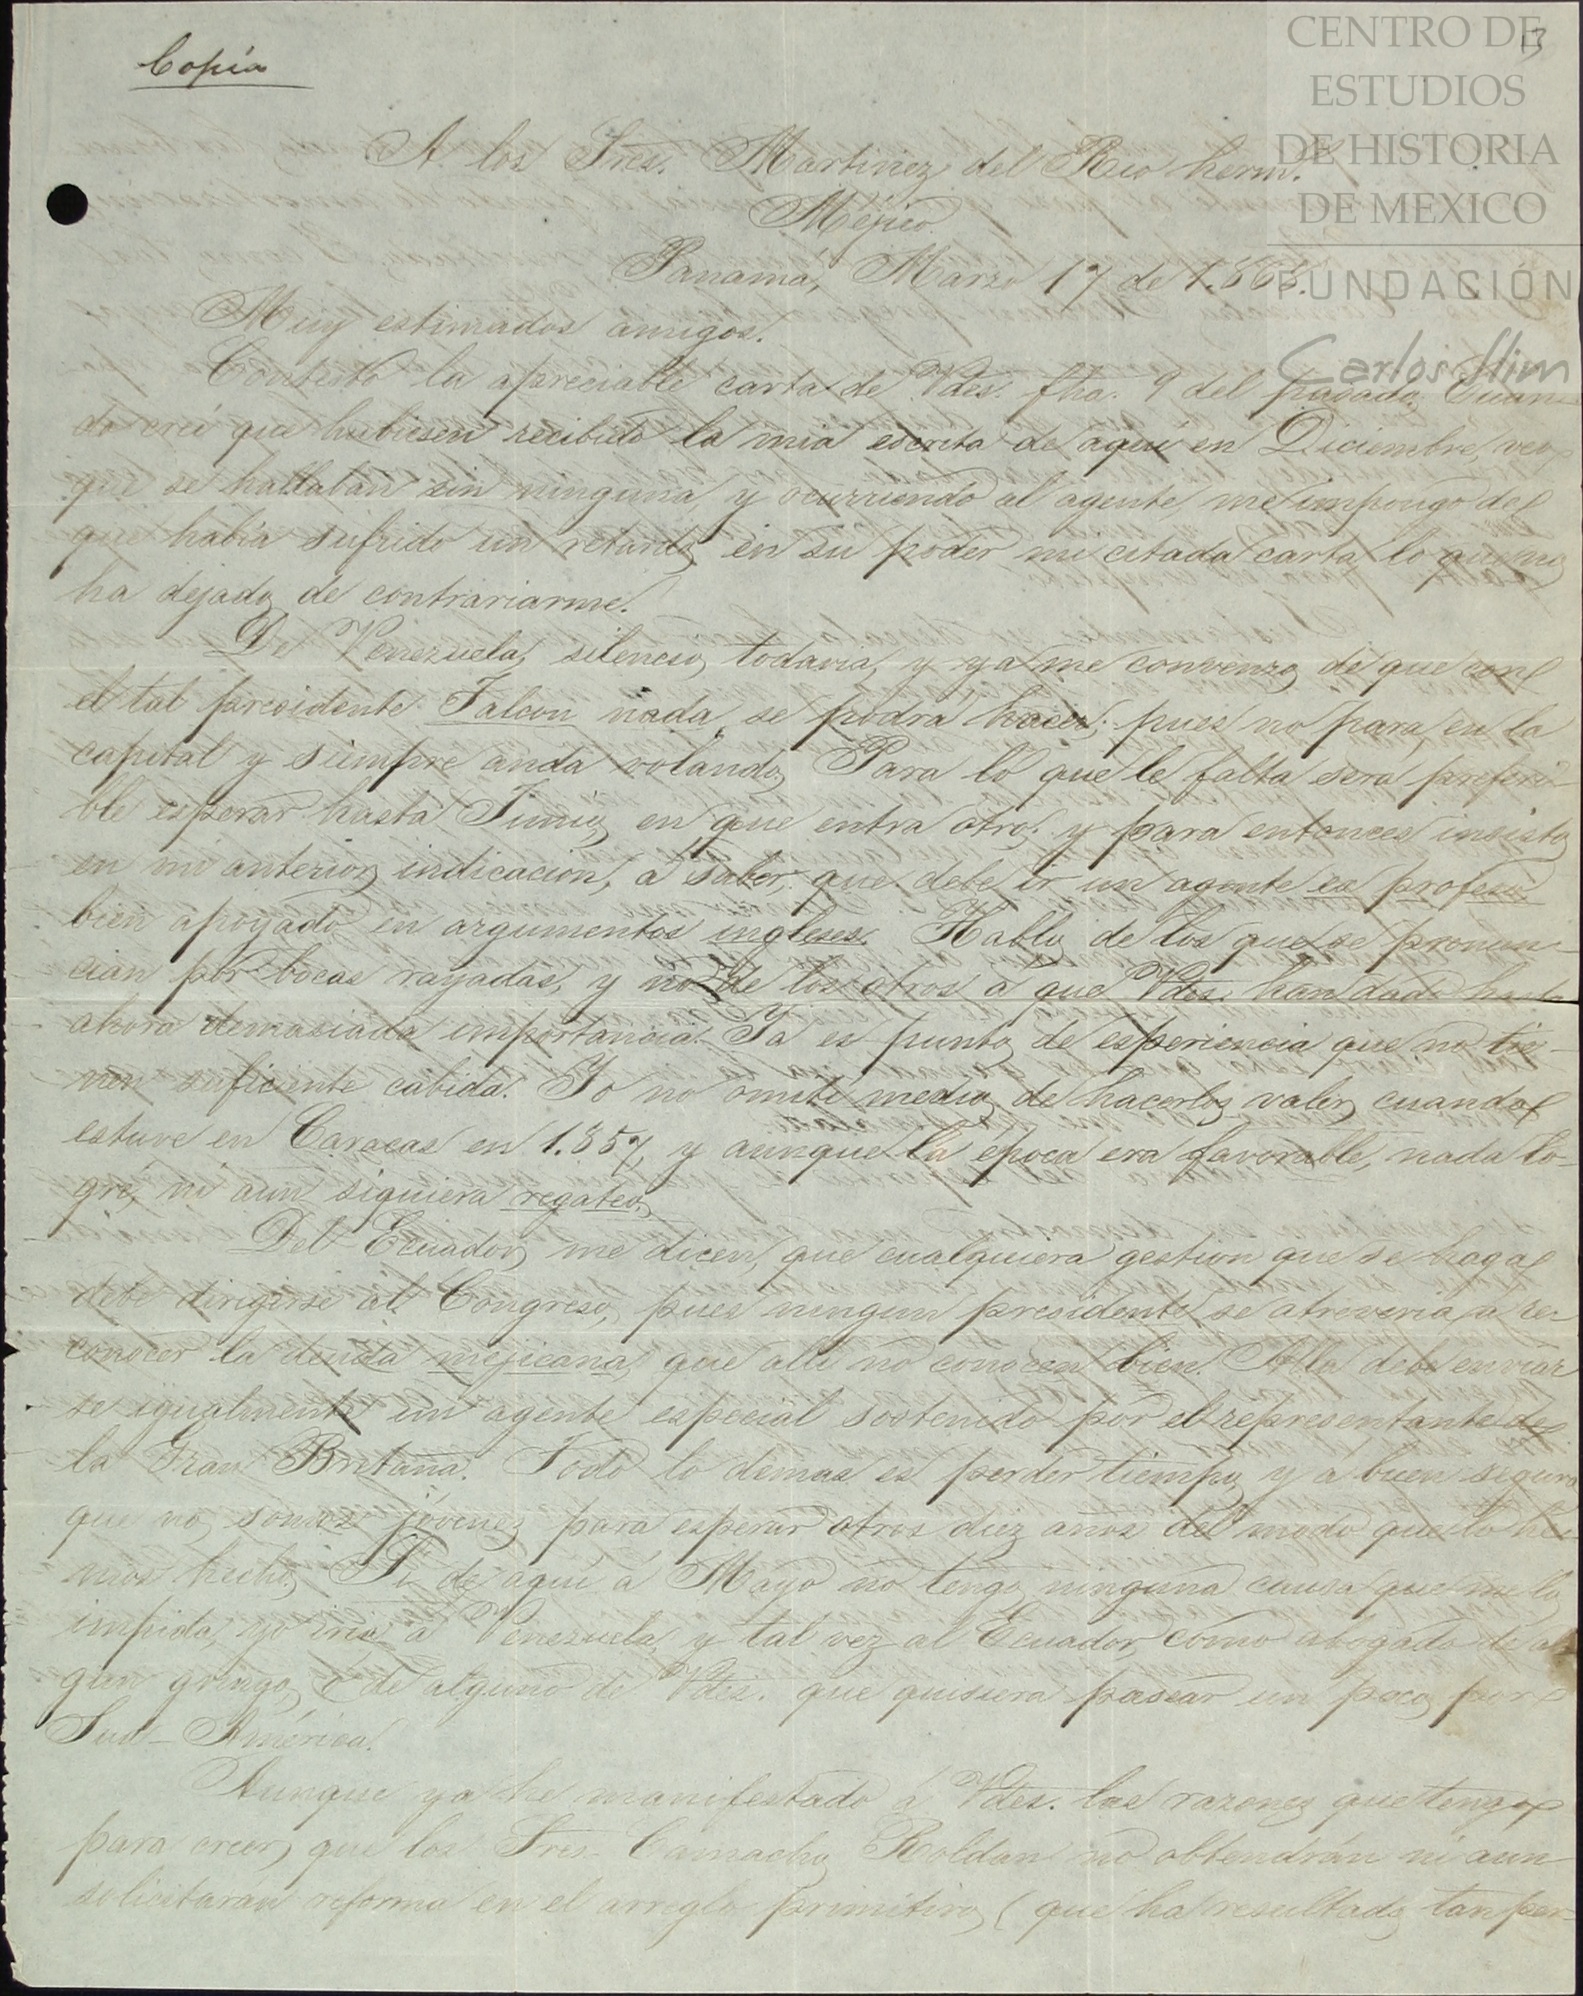 CENTRO DE
ESTUDIOS
DE HISTORIA
DE MEXICO
FUNDACIÓN
Carlos Slim
13
Copia
A los Sres. Martinez del Rio herm.
Méjico.
Panamá, Marzo 17 de 1.868.
Muy estimados amigos.
Contesto la apreciable carta de Vdes. fha. 9 del pasado. Cuan-
do creí que hubiesen recibido la mia escrita de aquí en Diciembre, veo
que se hallaban sin ninguna, y ocurriendo al agente, me impongo de
que habia sufrido un retardo en su poder mi citada carta, lo que no
ha dejado de contrariarme.
De Venezuela, silencio todavia, y ya me convenzo de que con
el tal presidente Falcon nada se podrá hacer; pues no para en la
capital y siempre anda volando. Para lo que le falta será preferi-
ble esperar hasta Junio, en que entra otro; y para entonces insisto
en mi anterior indicacion, á saber, que debe ir un agente ex profeso
bien apoyado en argumentos ingleses. Hablo de los que se pronun-
cian por bocas rayadas, y no de los otros á que Vdes. han dado hasta
ahora demasiada importancia. Ya es punto de esperiencia que no tie-
nen suficiente cabida. Yo no omití medio de hacerlos valer cuando
estuve en Caracas en 1.857, y aunque la época era favorable, nada lo-
gré, ni aun siquiera regateo.
Del Ecuador me dicen, que cualquiera gestion que se haga
debe dirigirse al Congreso, pues ningun presidente se atreveria á re-
conocer la deuda mejicana, que allí no conocen bien. Allá debe enviar
se igualmente un agente especial sostenido por el representante de
la Gran Bretaña. Todo lo demas es perder tiempo, y á buen seguro
que no somos jóvenes para esperar otros diez años del modo que lo he-
mos hecho. Si de aquí á Mayo no tengo ninguna causa que me lo
impida, yo iria á Venezuela, y tal vez al Ecuador, como abogado de al
gun gringo, ó de alguno de Vdes. que quisiera pasear un poco por
Sud-América.
Aunque ya he manifestado á Vdes. las razones que tengo
para creer que los Sres. Camacho Roldan no obtendrán ni aun
solicitarán reforma en el arreglo primitivo (que ha resultado tan per-